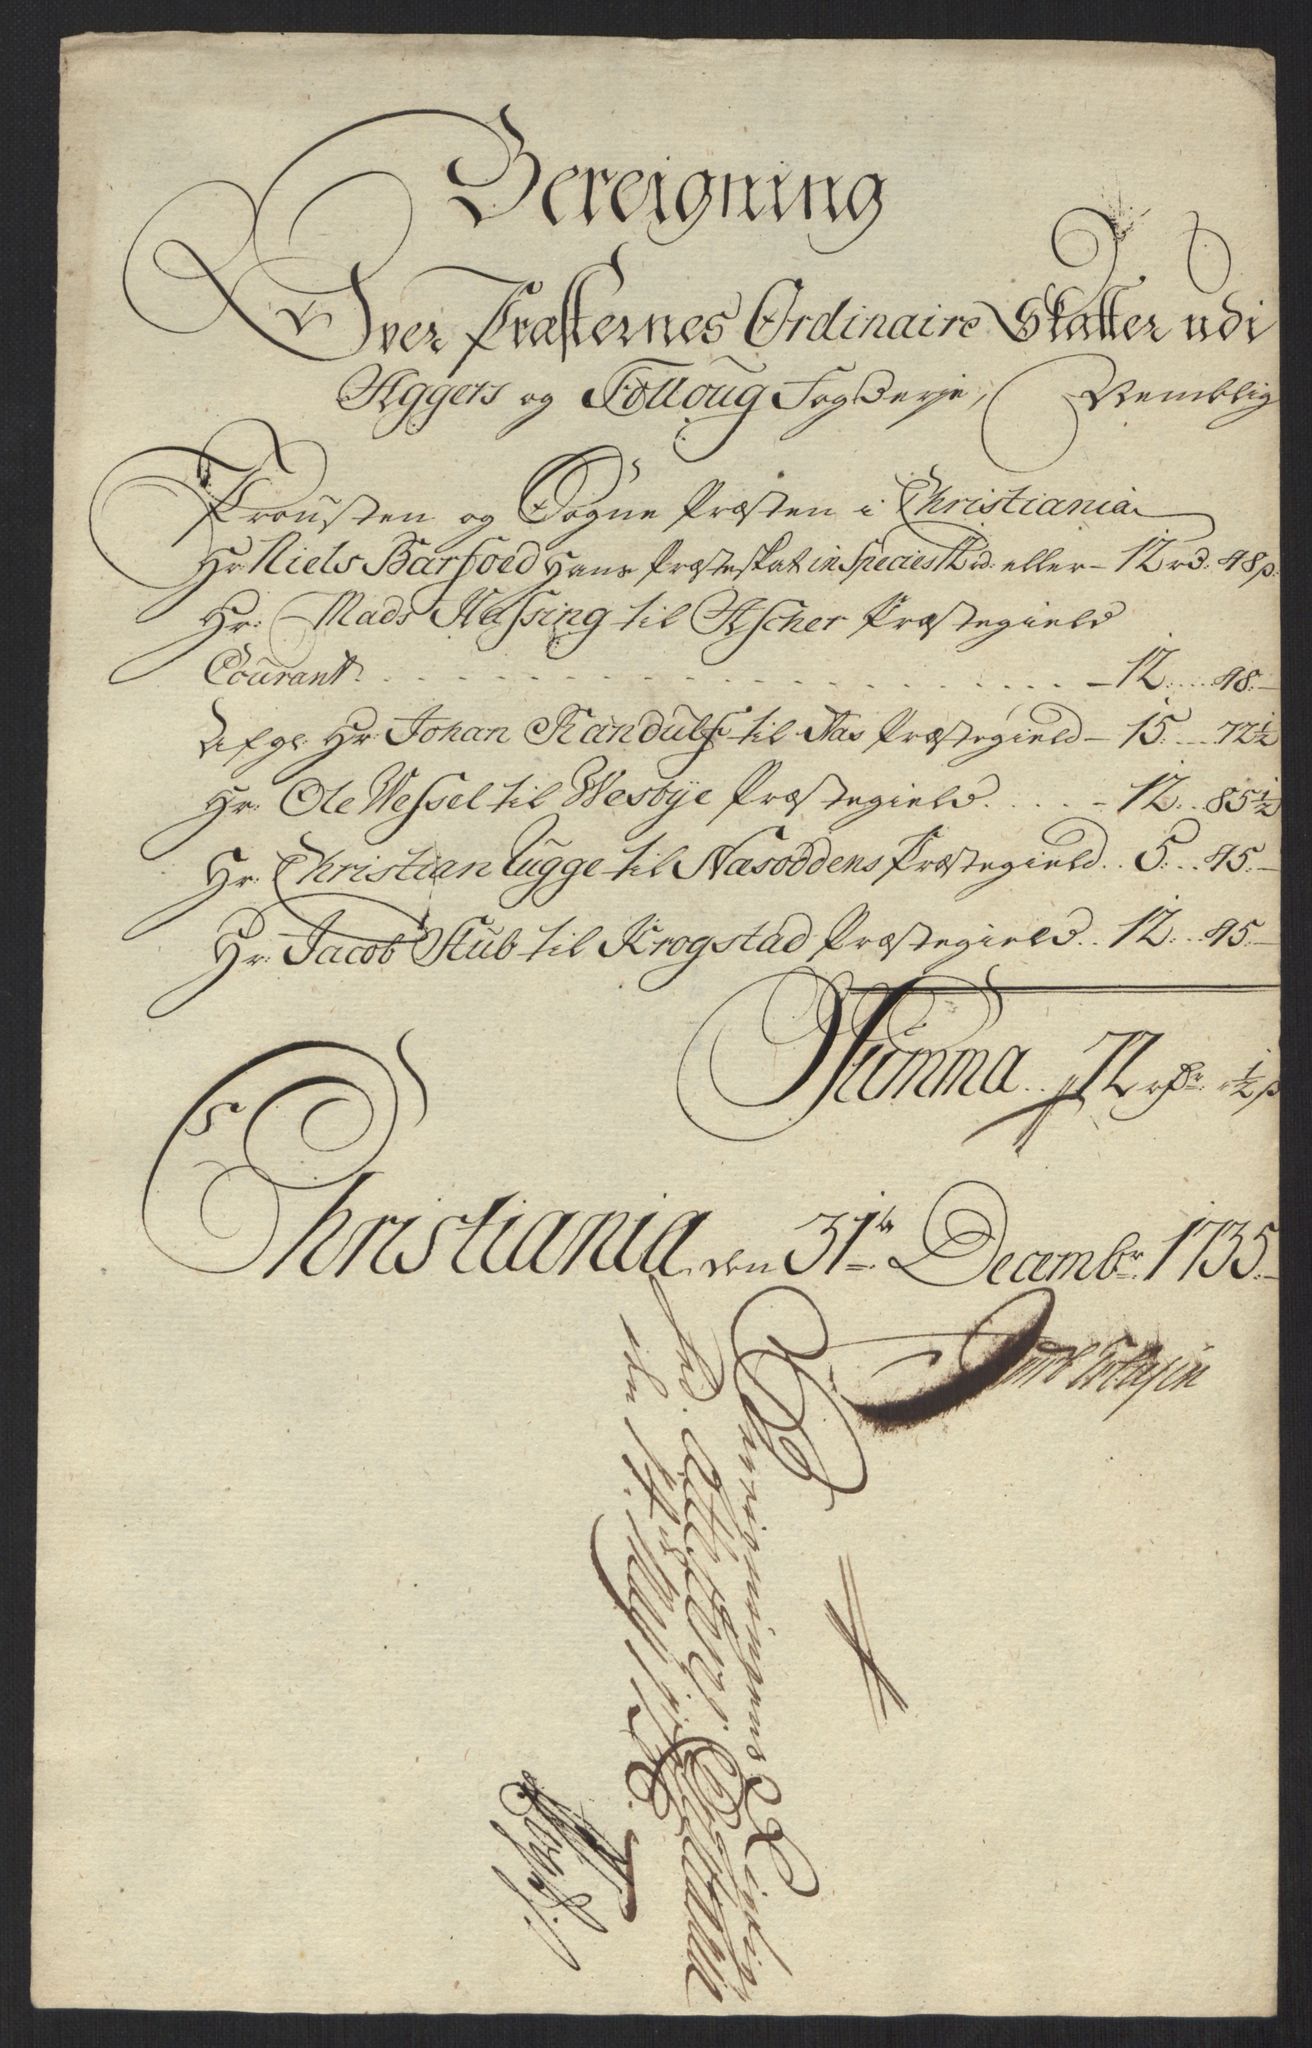 Bereigning
Over Præsternes Ordinaire Skatter udi
Aggers og Folloug Fogderje, Nemblig
Prousten og Sogne Præsten i Christiania
Hr Niels Barfoed Hans Præsteskat in Species 12 rd: eller - 12 rd. 48 s.
Hr: Mads Hassing til Ascher Præstegield
Courant - 12. 48.
Hr Johan Randulf til Aas Præstegield - 15. 72½
Hr: Ole Wessel til Wesbye Præstegield - 12. 85½
Hr: Christian Lugge til Næsoddens Præstegield. 5. 45.
Hr: Jacob Stub til Krogstad Præstegield. 12. 45.
Summa 72 rdr. ½ s
Christiania den 31te Decembr. 1735
Bereigningens Rigtighed